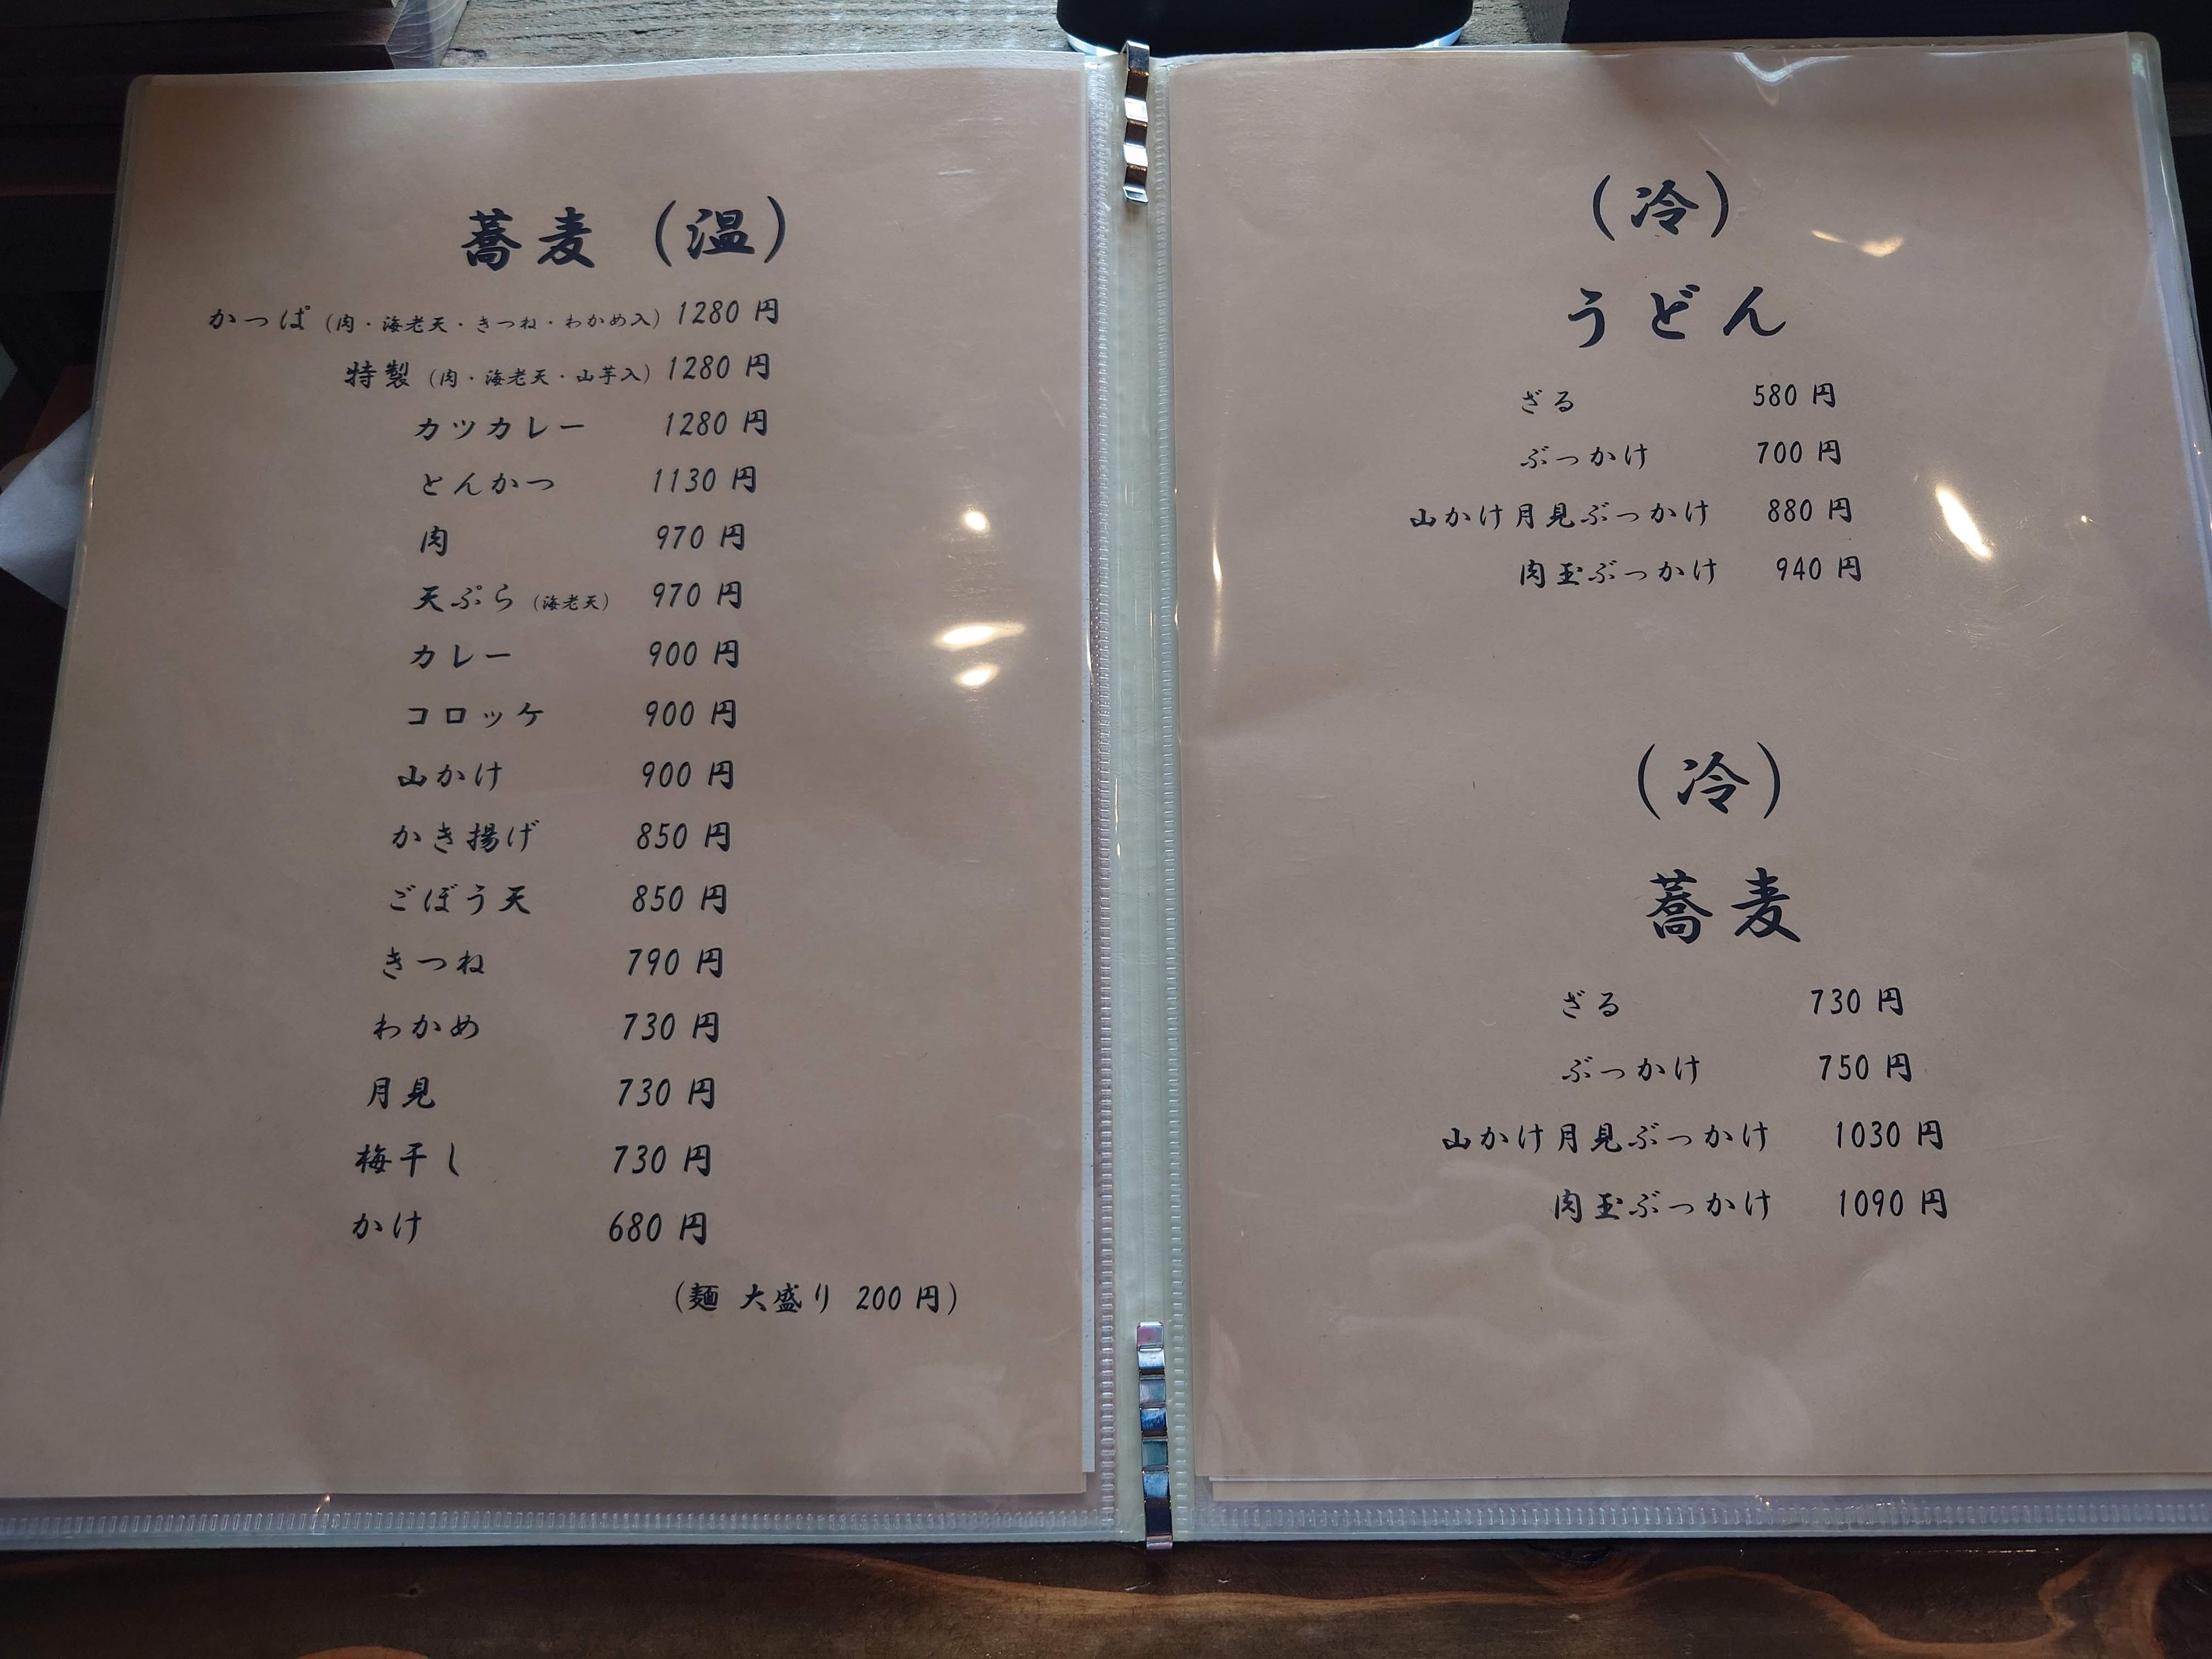 蕎麦（温）
かっぱ（肉・海老天・きつね・わかめ入）1280円
特製（肉・海老天・山芋入）1280円
カツカレー 1280円
とんかつ 1130円
肉 970円
天ぷら（海老天） 970円
カレー 900円
コロッケ 900円
山かけ 900円
かき揚げ 850円
ごぼう天 850円
きつね 790円
わかめ 730円
月見 730円
梅干し 730円
かけ 680円
（麺 大盛り 200円）
（冷）
うどん
ざる 580円
ぶっかけ 700円
山かけ月見ぶっかけ 880円
肉玉ぶっかけ 940円
（冷）
蕎麦
ざる 730円
ぶっかけ 750円
山かけ月見ぶっかけ 1030円
肉玉ぶっかけ 1090円